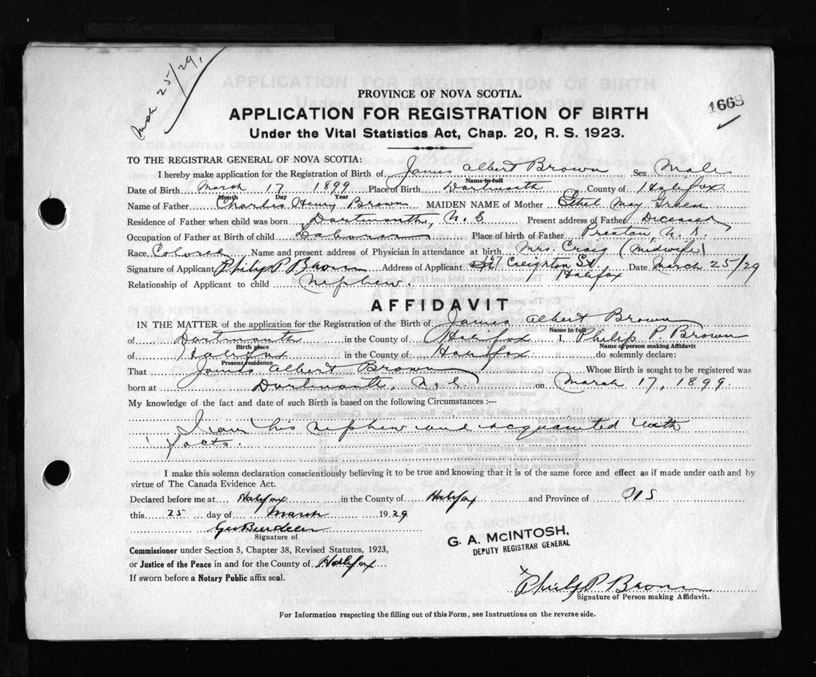 Mch 25/29,
1668
PROVINCE OF NOVA SCOTIA.
APPLICATION FOR REGISTRATION OF BIRTH
Under the Vital Statistics Act, Chap. 20, R. S. 1923.
TO THE REGISTRAR GENERAL OF NOVA SCOTIA:
I hereby make application for the Registration of Birth of James Albert Brown Sex Male
Name in full
Date of Birth March 17 1899 Place of Birth Dartmouth County of Halifax
Month Day Year
Name of Father Charles Henry Brown MAIDEN NAME of Mother Ethel May
Residence of Father when child was born Dartmouth, N.S Present address of Father Deceased
Occupation of Father at Birth of child Laborer Place of birth of Father Preston N.S.
Race Colored Name and present address of Physician in attendance at birth Mrs. Craig (Midwife)
Signature of Applicant Philip P. Brown Address of Applicant 67 Creighton St Halifax Date March 25/29
Relationship of Applicant to child nephew.
AFFIDAVIT
IN THE MATTER of the application for the Registration of the Birth of James Albert Brown
Name in full
of Dartmouth in the County of Halifax I, Philip P. Brown
Birth place Name of person making Affidavit
of Halifax in the County of Halifax do solemnly declare:
Present residence
That James Albert Brown Whose Birth is sought to be registered was
born at Dartmouth, N.S. on March 17, 1899.
My knowledge of the fact and date of such Birth is based on the following Circumstances :—
I am his nephew and acquainted with
facts.
I make this solemn declaration conscientiously believing it to be true and knowing that it is of the same force and effect as if made under oath and by
virtue of The Canada Evidence Act.
Declared before me at Halifax in the County of Halifax and Province of NS
this 25 day of March 1929
Signature of
G. A. MCINTOSH,
DEPUTY REGISTRAR GENERAL
Commissioner under Section 5, Chapter 38, Revised Statutes, 1923,
or Justice of the Peace in and for the County of Halifax
If sworn before a Notary Public affix seal.
x Philip P Brown
Signature of Person making Affidavit.
For Information respecting the filling out of this Form, see Instructions on the reverse side.